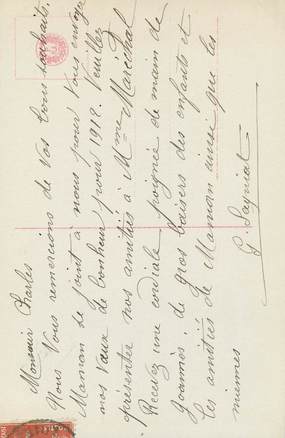 Monsieur Charles
Nous Vous remercions de vos bons souhaits.
Maman se joint à nous pour Vous envoyer
nos vœux de bonheur pour 1912. Veuillez
présenter nos amitiés à Mme Maréchal
Recevez une cordiale poignée de main de
de gros baisers des enfants et
les amitiés de Maman ainsi que les
miennes
G.